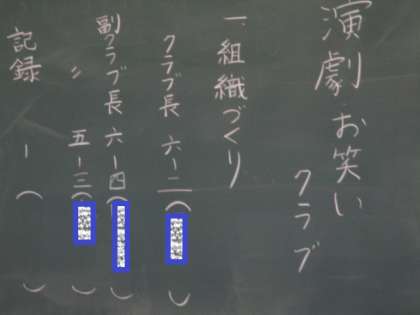 演劇・お笑い
クラブ
一、組織づくり
クラブ長 六-二( )
副クラブ長 六-四( )
〃 五-三( )
記録 -( )